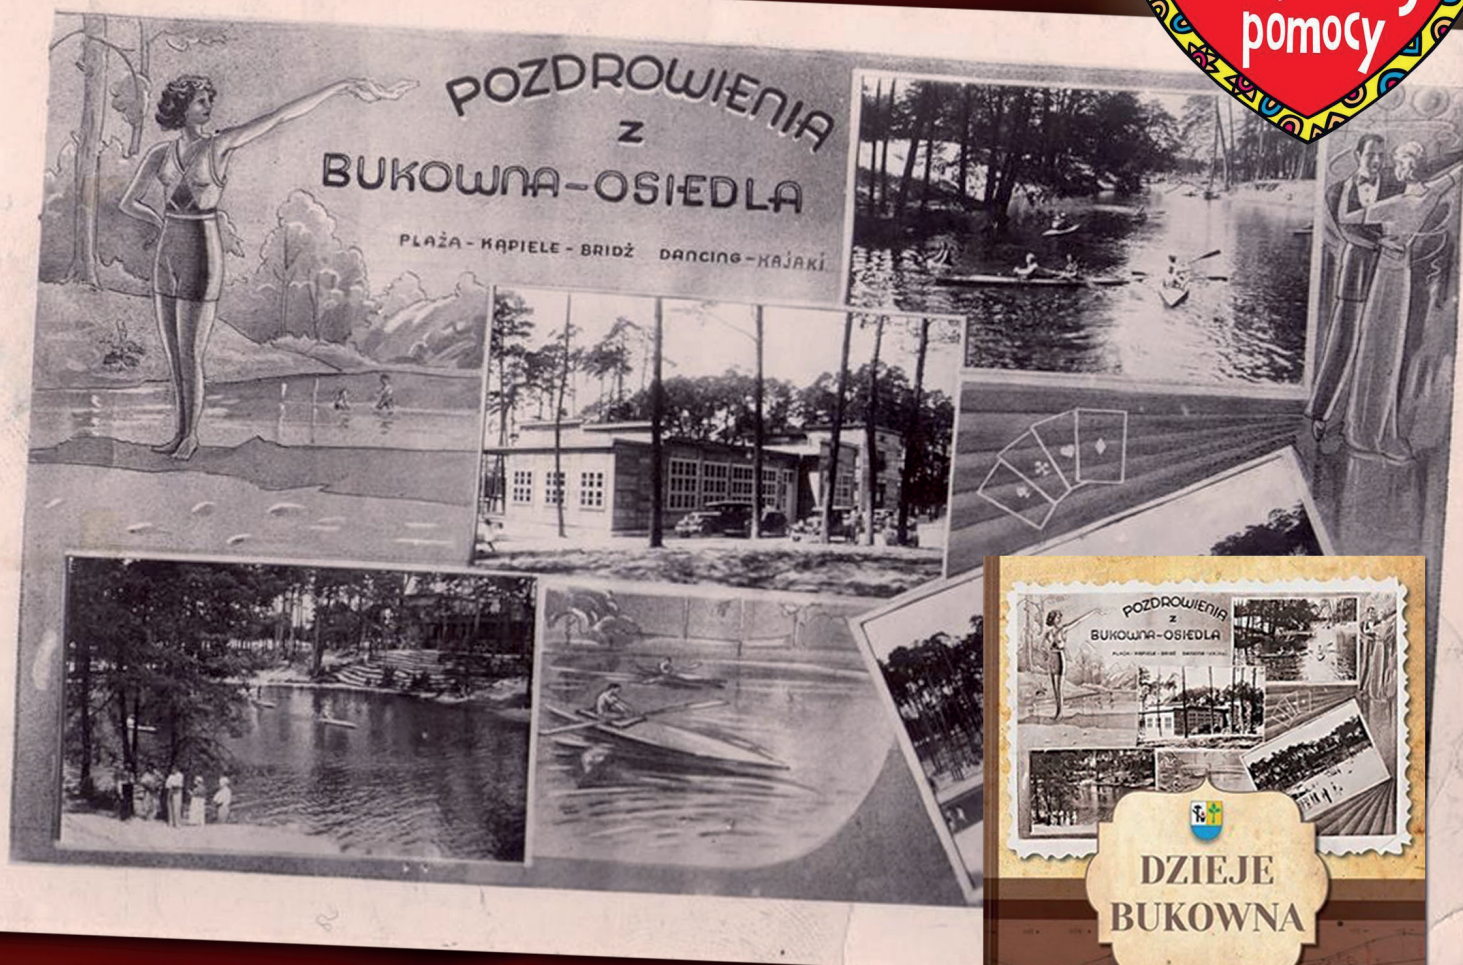 pomocy
POZDROWIENIA
Z
BUKOWNA-OSIEDLA
PLAŻA - KĄPIELE - BRIDŻ DANCING - KAJAKI
POZDROWIENIA
Z
BUKOWNA-OSIEDLA
PLAŻA - KĄPIELE - BRIDŻ DANCING - KAJAKI
DZIEJE
BUKOWNA